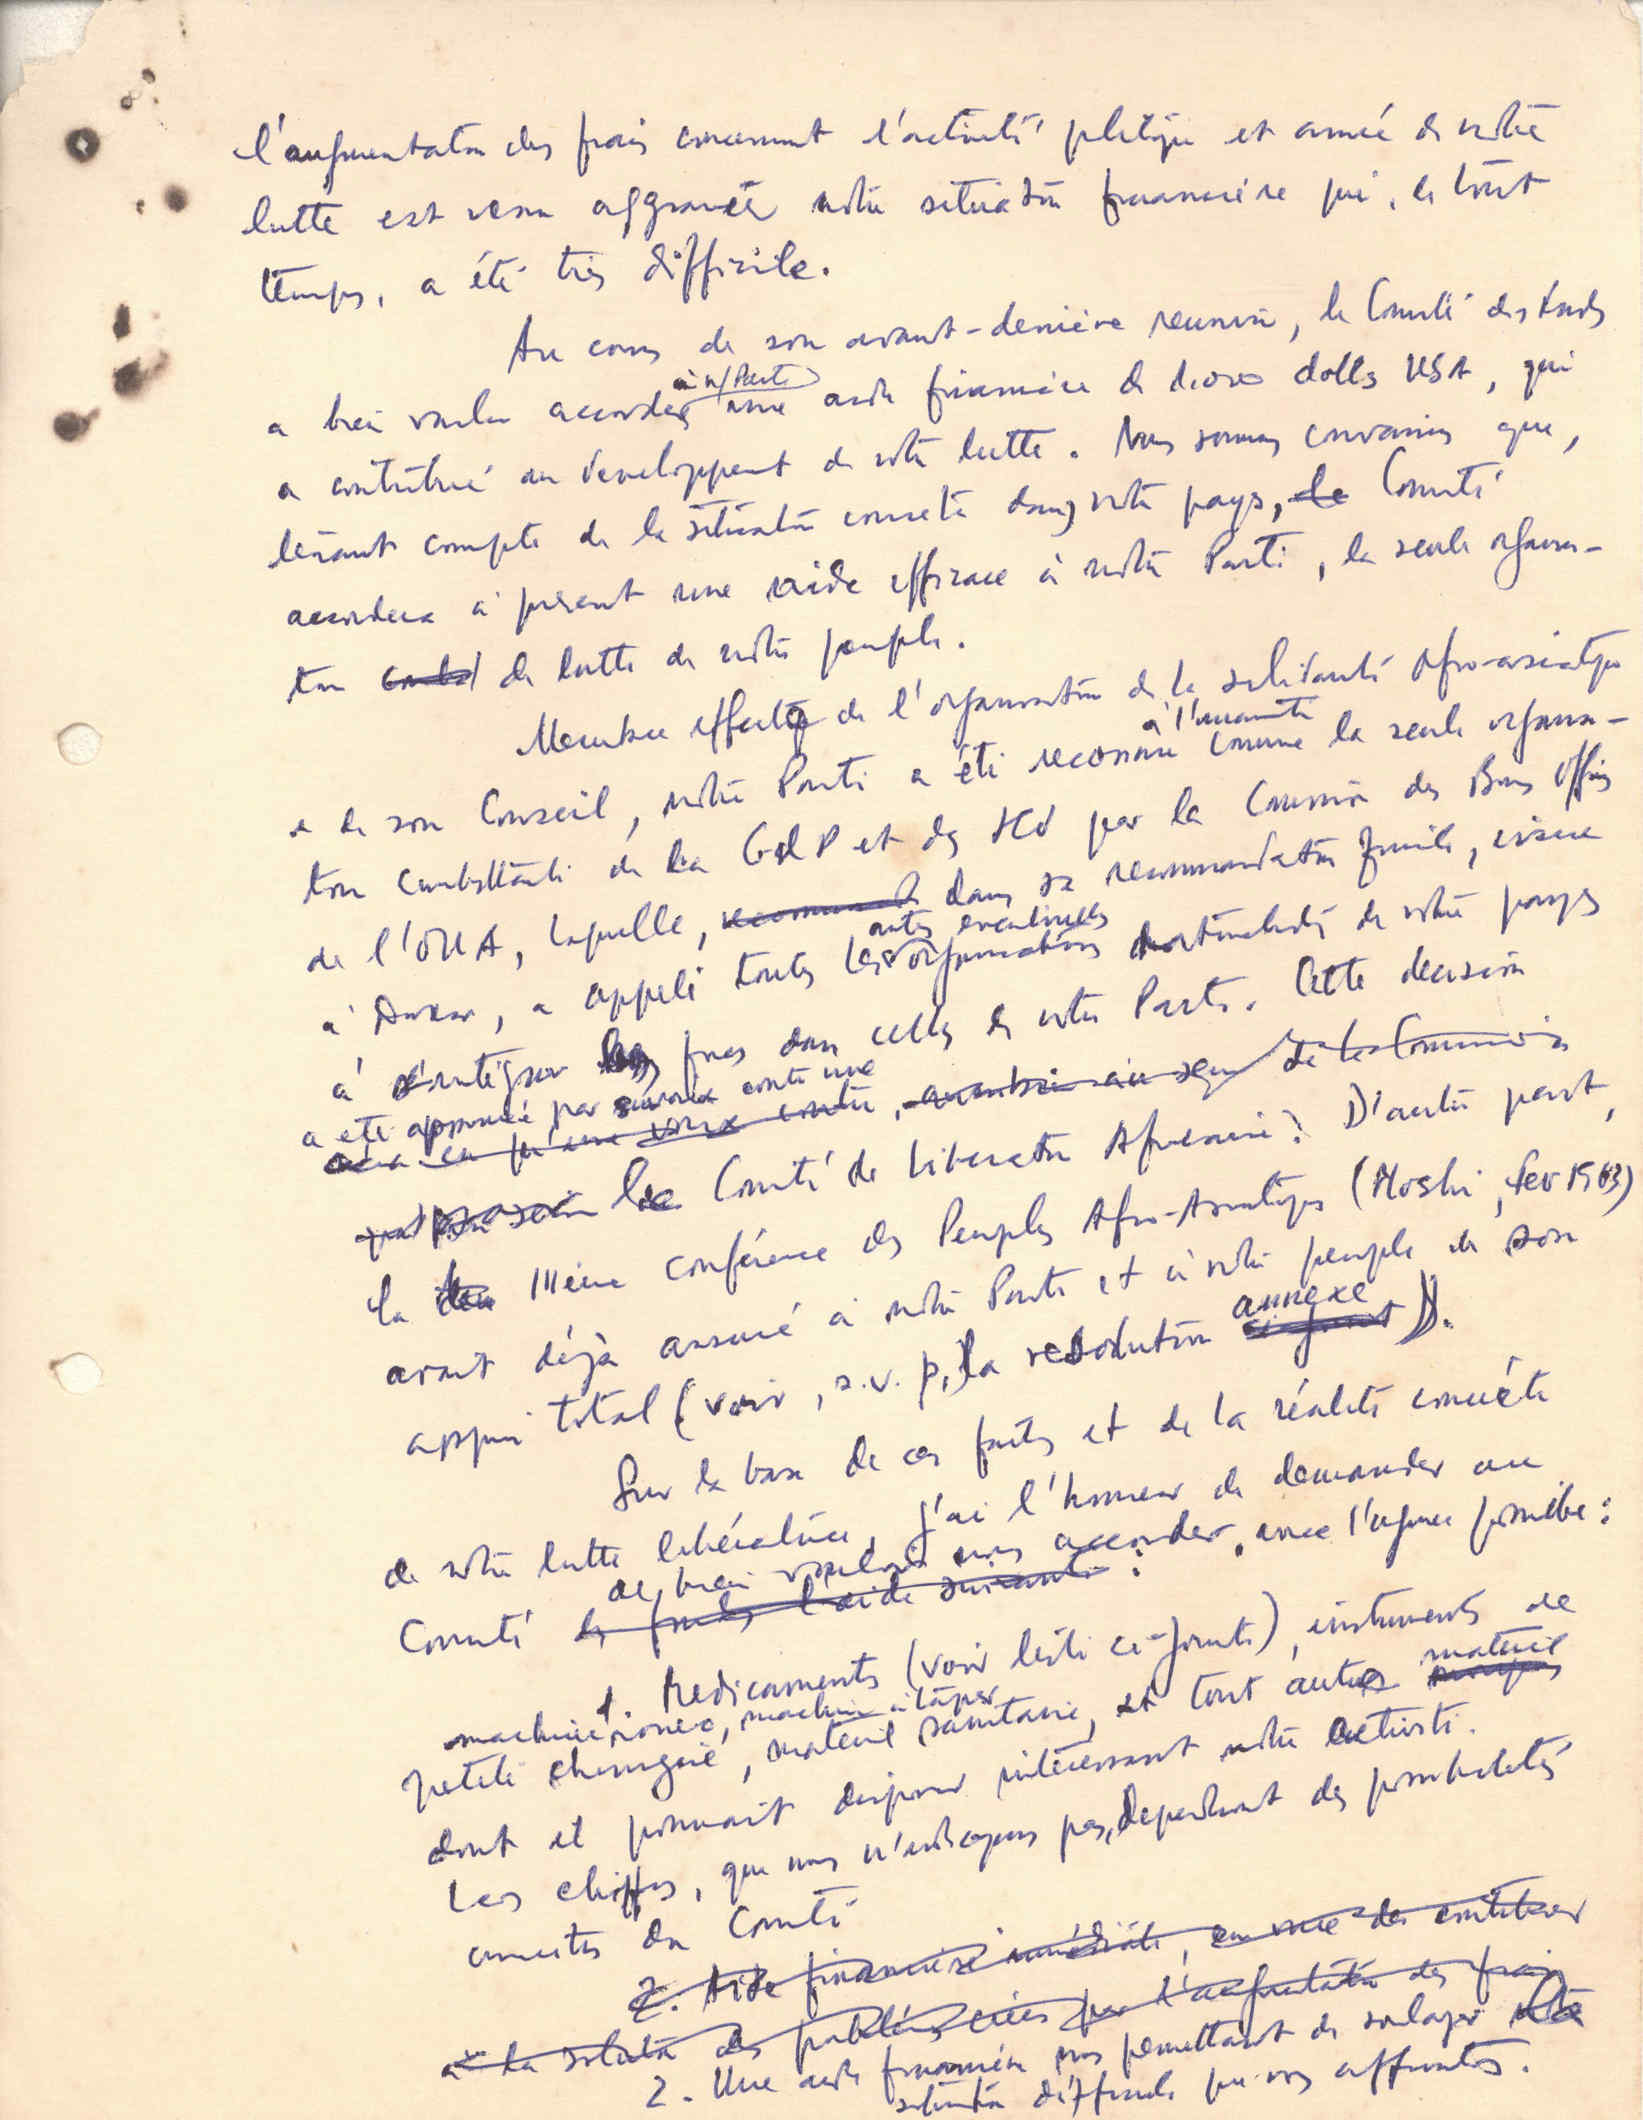 l'augmentation des frais concernant l'activité politique et armée de notre
lutte est venu aggraver notre situation financière qui, de tout
temps, a été très difficile.
Au cours de son avant-dernière reunion, le Comité des Fonds
a bien voulu accorder à n/Parti une aide financière de dollars USA, qui
a contribué au développement de notre lutte. Nous sommes convaincus que,
tenant compte de la situation concrète dans notre pays, le Comité
accordera à présent une aide efficace à notre Parti, la seule organisa-
tion de lutte de notre peuple.
Membre effectif de l'organisation de la solidarité afro-asiatique
e de son Conseil, notre Parti a été reconnu à l'unanimité comme la seule organisa-
tion combattante de la G«P» et des ICV par la Commission des Bons Offices
de l'OUA, laquelle, dans sa recommandation finale, issue
à Dakar, a appelé toutes les autres eventuelles organisations nationalistes de notre pays
à s'intégrer dans celles de notre Parti. Cette decision
a été approuvée par contre une
voix contre, au sein de la Commission
le Comité de Liberation Africaine. D'autre part,
la IIIème conférence des Peuples Afro-Asiatiques (Moshi, fev 1963)
avait déjà assuré à notre Parti et à notre peuple de son
appui total (voir, s.v.p, la resolution annexe).
Sur la base de ces faits et de la réalité concrète
de notre lutte libératrice, j'ai l'honneur de demander au
Comité de bien vouloir nous accorder, avec l'urgence possible:
l'aide suivante:
1. Medicaments (voir liste ci-jointe), instruments de
machine ronéo, machine à taper
petite chirurgie, materiel sanitaire, et tout autre materiel
dont il pourrait disposer intéressant notre activité.
Les chiffres, que nous n'indiquons pas, dependront des possibilités
du Comité
2. Aide financière immédiate, en vue de contribuer
à la solution des problèmes créés par l'augmentation des frais
2. Une aide financière nous permettant de soulager notre
situation difficile que nous affrontons.